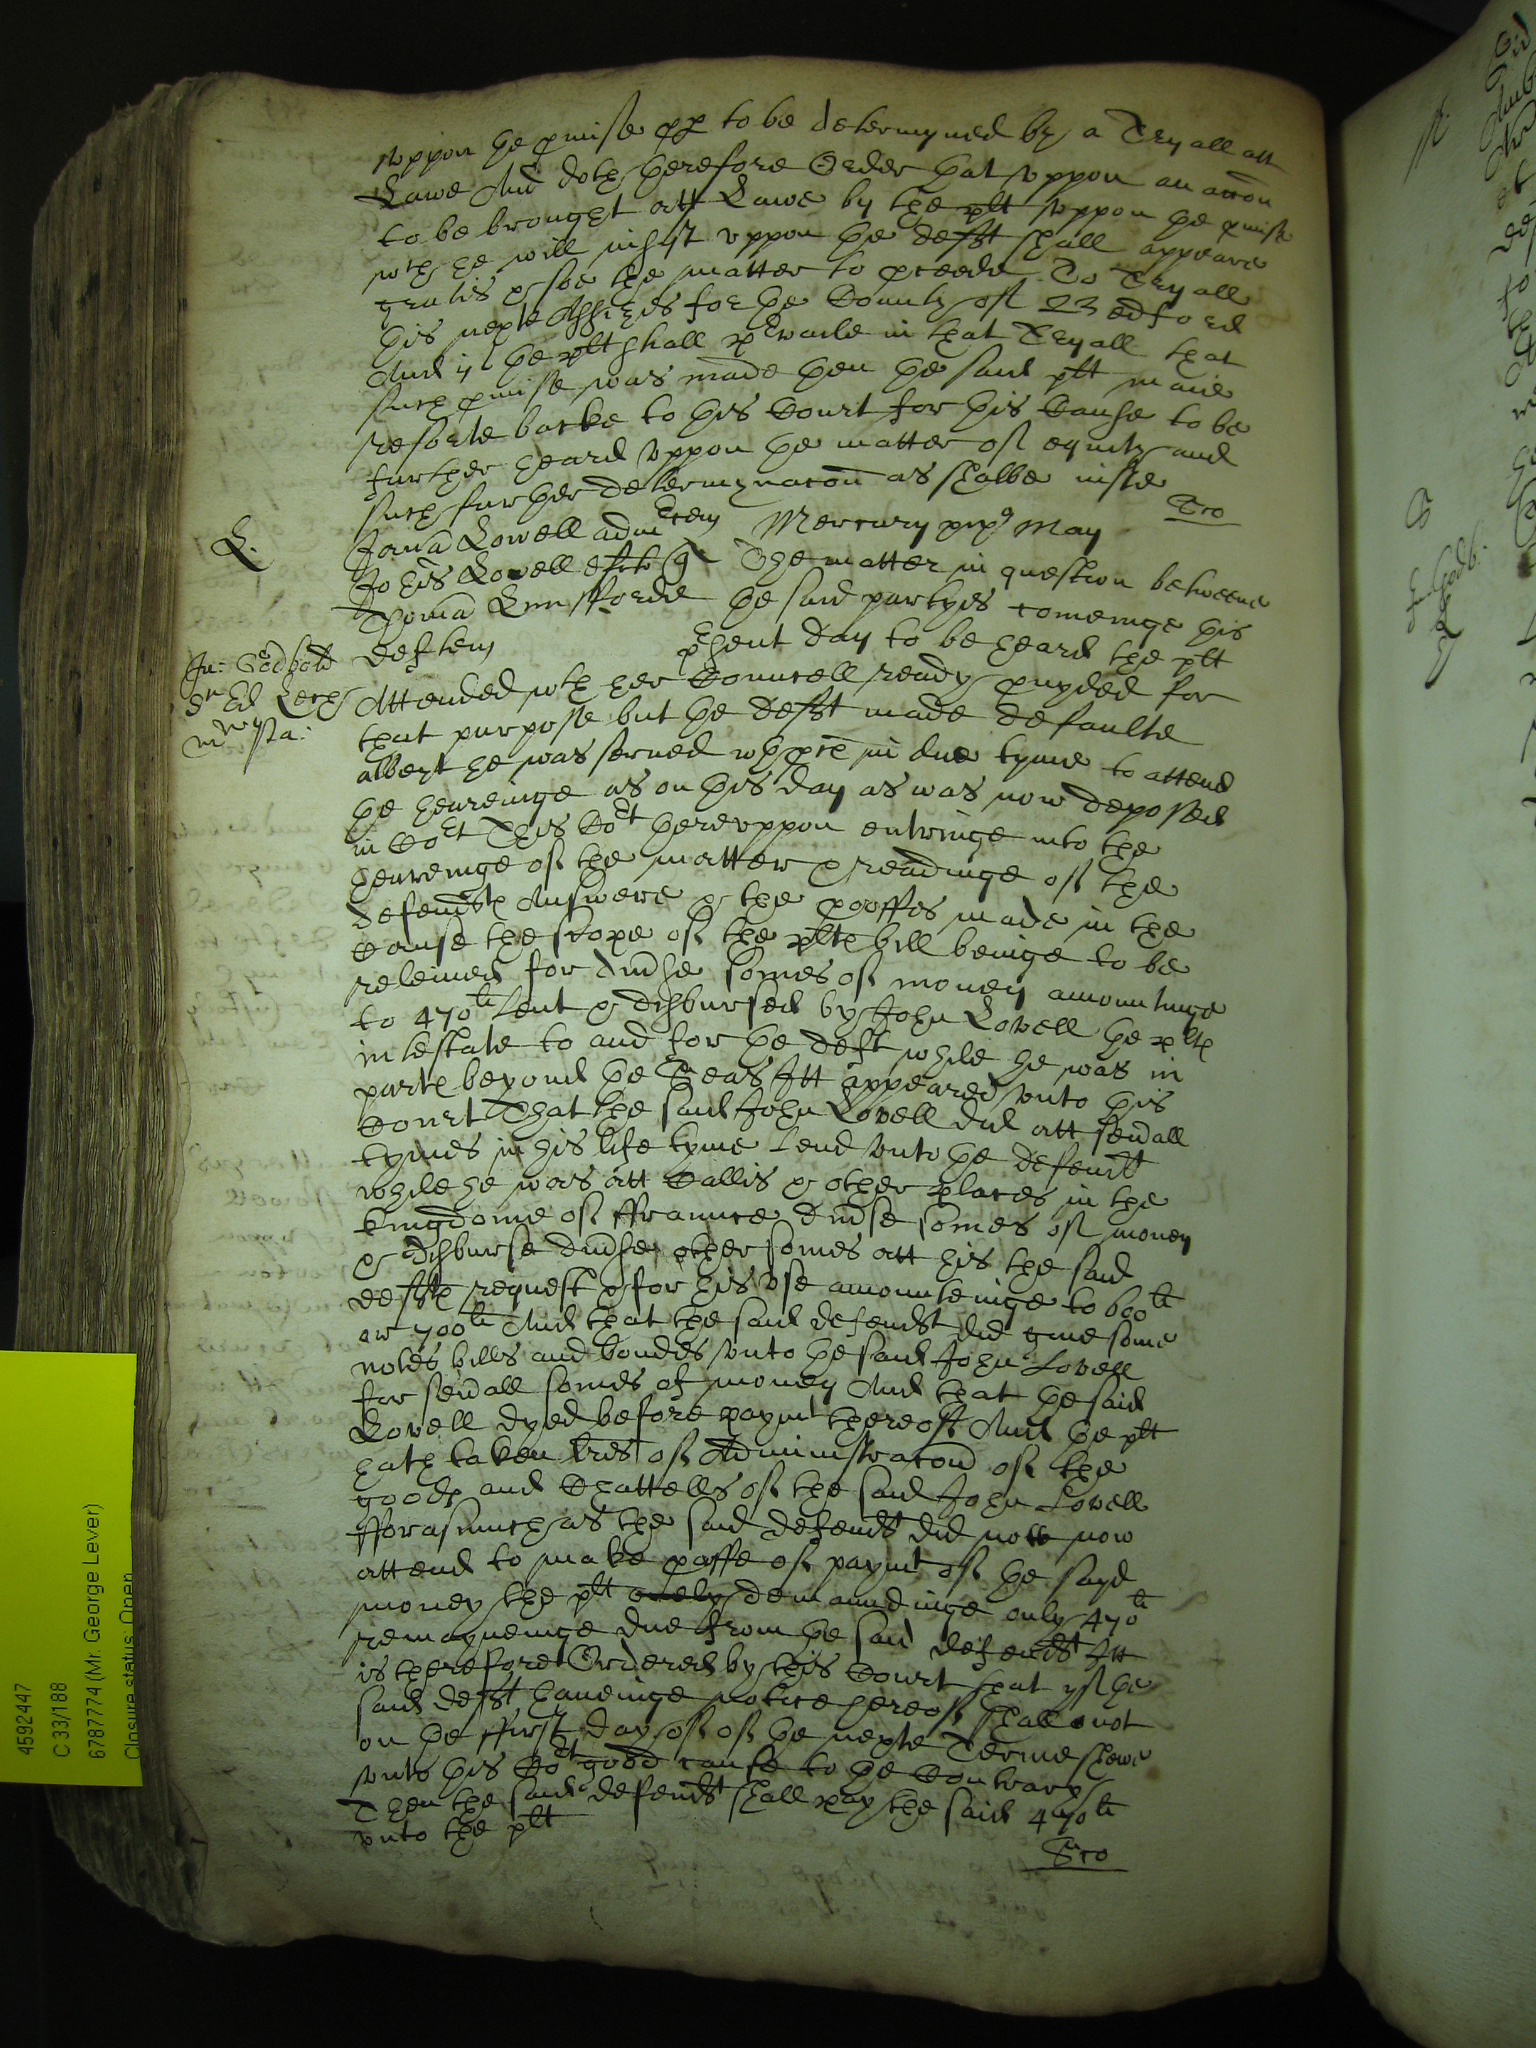 vppon the pmisse pp to be determyned by a Tryall att
Lawe And doth therefore Order that vppon an accon
to be brought att Lawe by the plt vppon the pmisse
wch he will insist vppon the defft shall appeare
gratis & soe the matter to pceede To Tryall
this nexte Assizes for the County of Bedford
And if the plt shall pvaile in that Tryall that
such pmisse was made then the said plt maie
resorte backe to this Court for his Cause to be
further heard vppon the matter of equity and
such further determynacon as shalbe iuste
Cro
L.
Joha Lovell adm
Johis Lovell
Thoma Lunsforde
deften
Mercury prio May
The matter in question betweene
the said partyes comeinge this
psent day to be heard the plt
Jn: Godbold
Attended wth her Councell ready pvyded for
that purpose but the defft made defaulte
albeyt he was served wth pces in due tyme to attend
the heareinge as on this day as was now deposed
in Cort This Cort therevppon entringe into the
heareinge of the matter & readinge of the
defendts Answere & the prooffes made in the
Cause the scope of the plts bill beinge to be
releived for divse somes of money amountinge
to 470li lent & disbursed by John Lovell the plts
intestate to and for the deft while he was in
parts beyond the Seas Itt appeared vnto this
Court That the said John Lovell did att seuall
tymes in his life tyme lend vnto the defendt
while he was att Callis & other places in the
kingdome of ffraunce divse somes of money
& disburse divse other somes att his the said
deffts request & for his vse amounteinge to 600li
or 700li And that the said defendt did giue some
notes bills and bondes vnto the said John Lovell
for seuall somes of money And that the said
Lovell dyed before paymt thereof And the plt
hath taken lres of Administracon of the
goods and Chattells of the said John Lovell
fforasmuch as the said defendt did nott now
attend to make prooffe of paymt of the sayd
money the plt onely demaundinge only 470li
remayneinge due from the said defendt Itt
is therefore Ordered by this Court that yf the
said defft haueinge notice hereof shall not
on the ffirst day of of the nexte Terme shewe
vnto this Cort good cause to the Contrary
Then the said defendt shall pay the said 470li
vnto the plt
Cro
4592447
C 33/188
6787774 (Mr. George Lever)
Closure status: Open